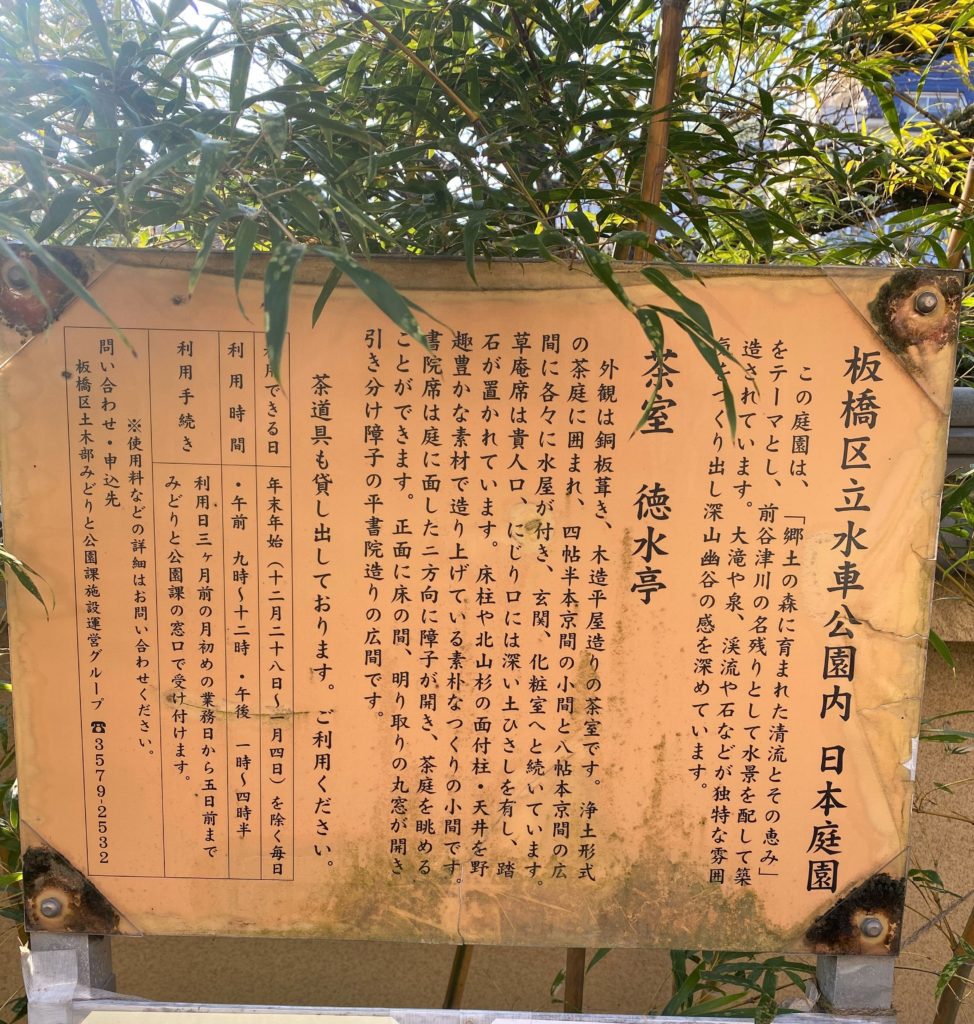 板橋区立水車公園内 日本庭園
この庭園は、「郷土の森に育まれた清流とその恵み」
をテーマとし、前谷津川の名残りとして水景を配して築
造されています。大滝や泉、渓流や石などが独特な雰囲
気をつくり出し深山幽谷の感を深めています。
茶室 徳水亭
外観は銅板葺き、木造平屋造りの茶室です。浄土形式
の茶庭に囲まれ、四帖半本京間の小間と八帖本京間の広
間に各々に水屋が付き、玄関、化粧室へと続いています。
草庵席は貴人口、にじり口には深い土ひさしを有し、踏
石が置かれています。床柱や北山杉の面付柱・天井を野
趣豊かな素材で造り上げている素朴なつくりの小間です。
書院席は庭に面した二方向に障子が開き、茶庭を眺める
ことができます。正面に床の間、明り取りの丸窓が開き
引き分け障子の平書院造りの広間です。
茶道具も貸し出しております。ご利用ください。
用できる日 年末年始(十二月二十八日〜一月四日)を除く毎日
利用時間 ・午前 九時〜十二時 ・午後 一時〜四時半
利用手続き 利用日三ヶ月前の月初めの業務日から五日前まで
みどりと公園課の窓口で受け付けます。
※使用料などの詳細はお問い合わせください。
問い合わせ・申込先
板橋区土木部みどりと公園課施設運営グループ ☎3579-2532